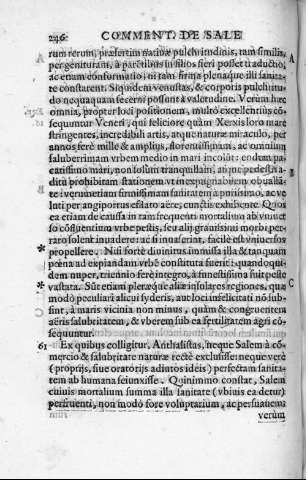 246 COMMENT. DE SALE
rum rerum, præsertim nativæ pulchritudinis, tam similis,
per genituram, à parentibus in filios fieri posset traductio,
ac etiam conformatio: ni tam firma plenaque illi sanita-
te constarent. Siquidem venustas, & corporis pulchritu-
do nequaquam secerni possunt à valetudine. Verùm hæc
omnia, propter loci positionem, multò excellentius cõ-
sequuntur Veneti, qui feliciore quàm Xerxis loro mare
stringentes, incredibili artis, atque naturæ miraculo, per
annos ferè mille & amplius, florentissimam, ac omnium
saluberrimam urbem medio in mari incolũt: eodem pa-
catissimo mari, non solùm tranquillam, atque pedestri a-
ditu prohibitam stationem, ut inexpugnabilem
te: verumetiam firmissimam sanitatem à purissimo, ac ve
luti per angiportus æstuaro aëre, cunctis exhibente. Quos
ea etiam de caussa in tam frequenti mortalium
so cõsuentium urbe pestis, seu alij gravissimi morbi per-
raro solent invadere: ac si invaserint, facilè est universos
* propellere. Nisi fortè divinitus immissa illa & tanquam
pœna ad expiandam urbẽ constituta fuerit: quandoqui-
dem nuper, triennio ferè integro, à funestissima fuit peste
* vastata. Sũt etiam pleræque aliæ insulares regiones, quæ
modò peculiari alicui syderis, aut loci infelicitati nõ sub-
sint, à maris vicinia non minus, quàm & congruentem
aëris salubritatem, & uberem sub ea fertilitatem agri cõ-
sequuntur.
61 Ex quibus colligitur, Antihalistas, neque Salem à cõ-
mercio & salubritate naturæ rectè exclusisse: neque verè
(propriis, sive oratorijs adiutos idéis) perfectam sanita-
tem ab humana seiunxisse. Quinimmo constat, Salem
cuivis mortalium summa illa sanitate (ubivis ea detur)
perfruenti, non modò fore voluptarium, ac persuavem
verùm